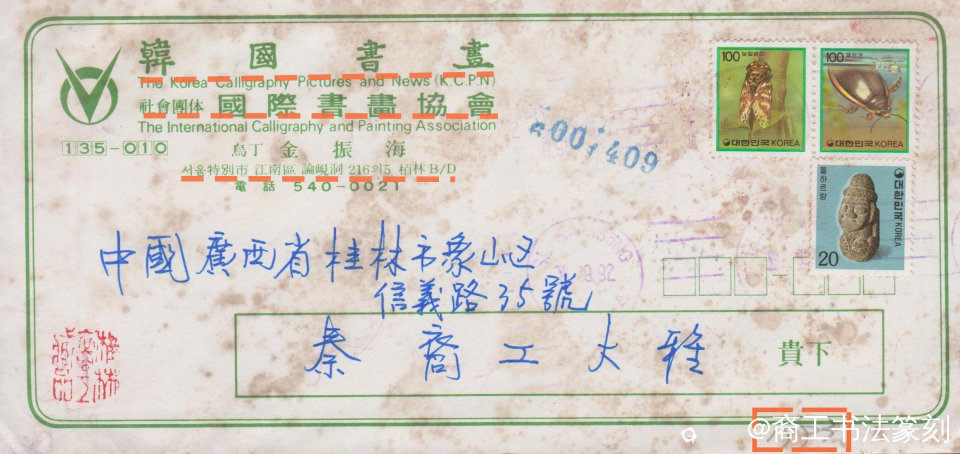 韓國書畫
The Korea Calligraphy Pictures and News (K.C.P.N)
社會團体 國際書畫協會
The International Calligraphy and Painting Association
135-010 烏丁 金振海
서울特別市 江南區 論峴洞 216의5 栢林 B/D
電話 540-0021
100 능말매미
100 물방개
대한민국 KOREA
대한민국 KOREA
돌하르방
대한민국 KOREA
20
400 409
中國廣西省桂林市象山区
信義路35號
秦裔工大雅 貴下
桂林
@裔工书法篆刻